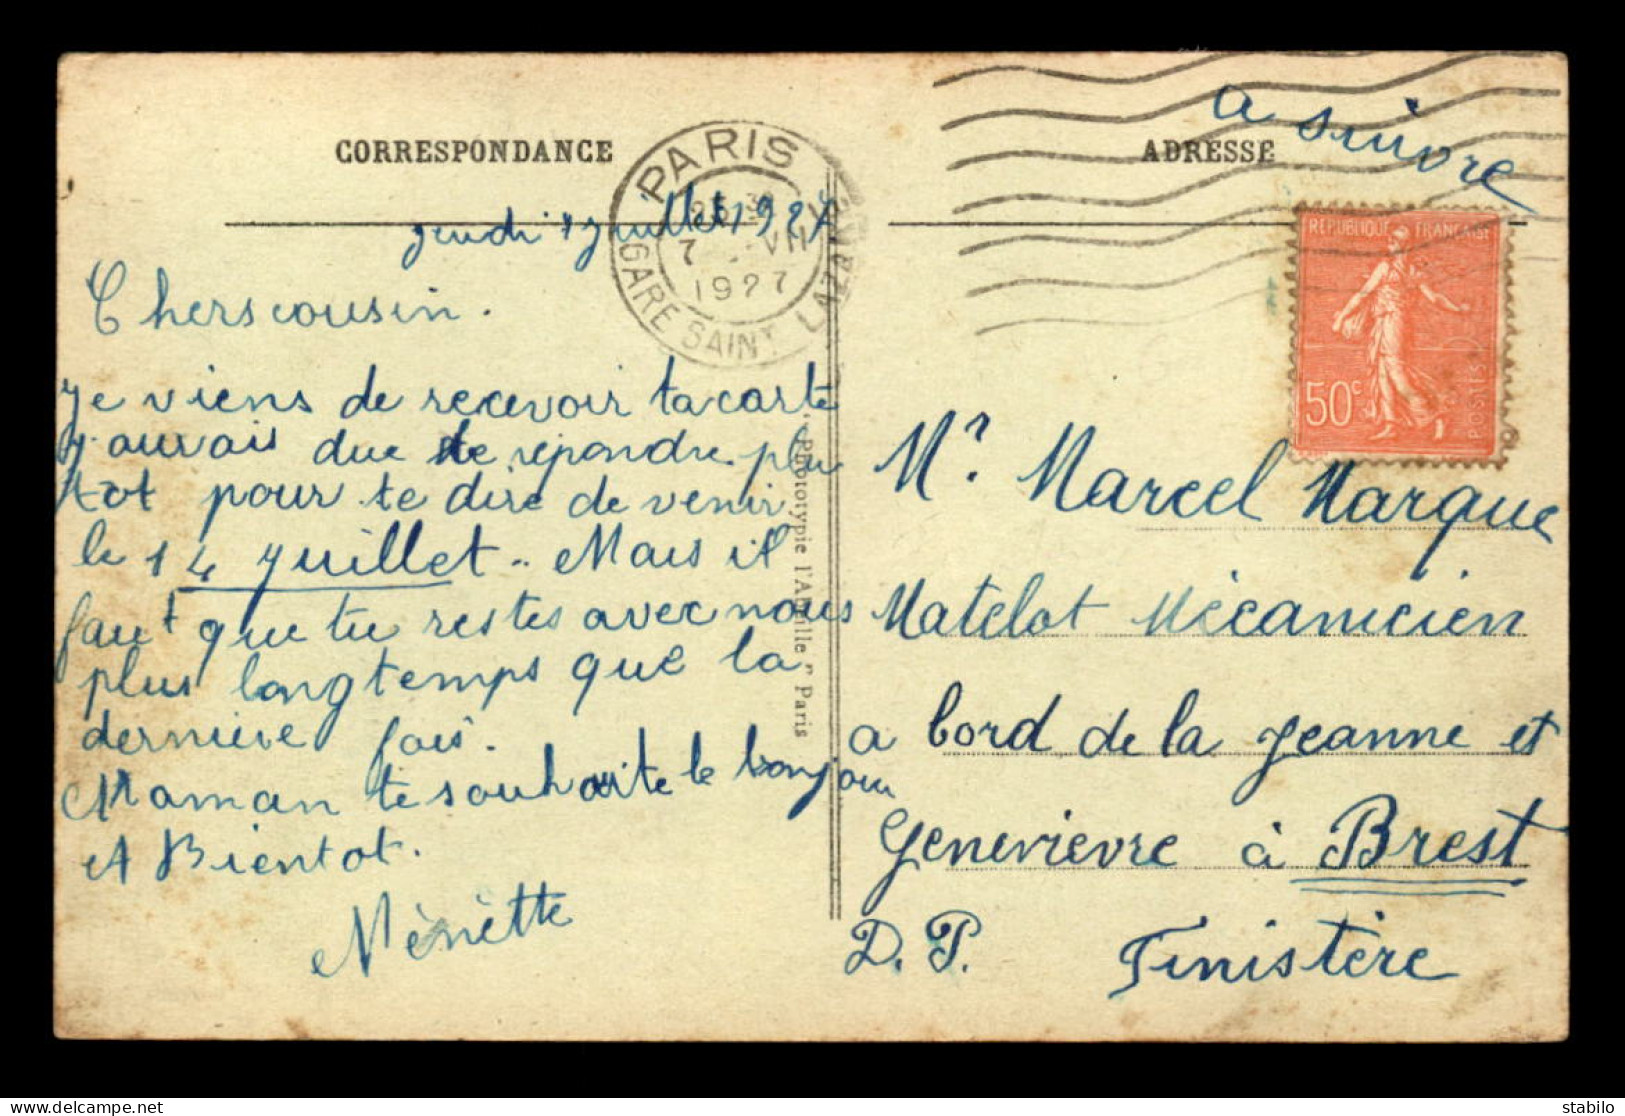 CORRESPONDANCE
jeudi 7 juillet 1927
Chers cousin.
Je viens de recevoir ta carte
J'auvais due te repondre plu
tot pour te dire de venir
le 14 juillet. Mais il
faut que tu restes avec nous
plus longtemps que la
derniere fois.
Maman te souhaite le bonjour
A Bientot.
Nénètte
PARIS
7 VII
1927
GARE SAINT LAZARE
"Phototypie l'Abeille" Paris
a suivre
ADRESSE
REPUBLIQUE FRANÇAISE
50c
POSTES
Mr Marcel Marque
Matelot Mécanicien
a bord de la Jeanne et
Genevievre à Brest
D. P. Finistère
stabilo